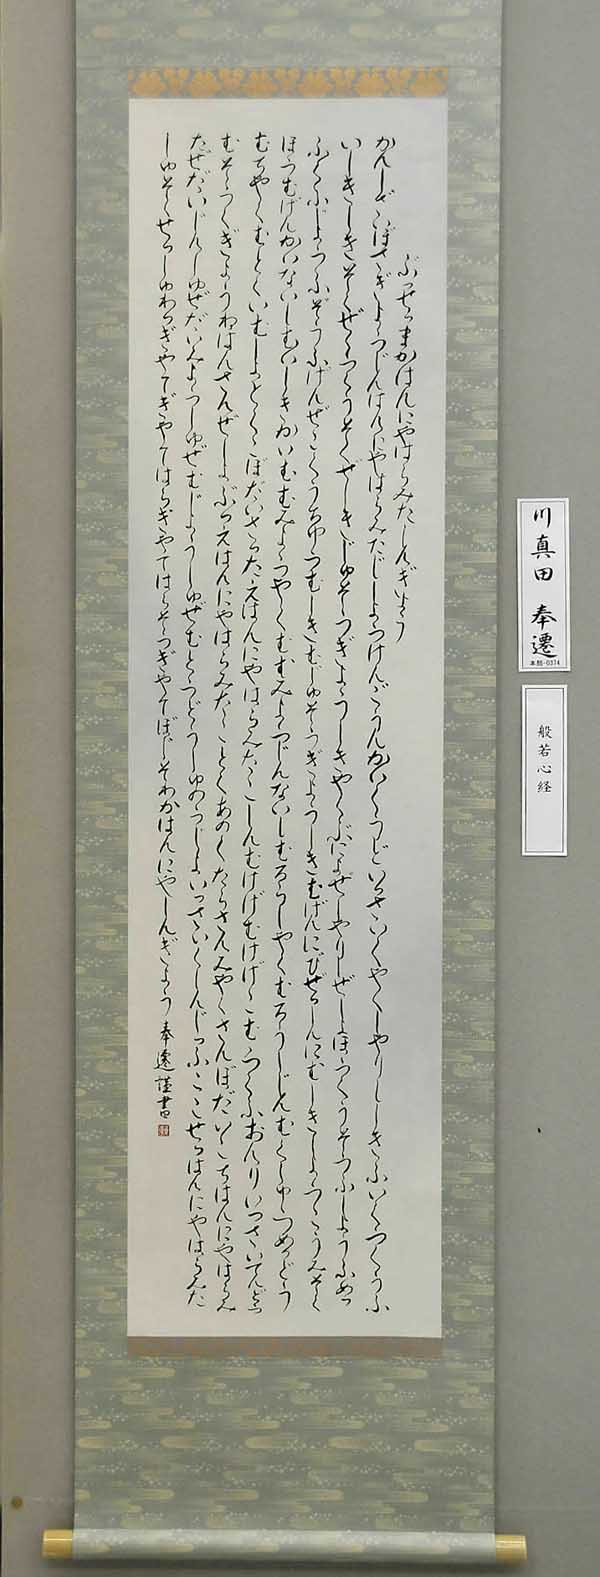 ぶっせつまかはんにやはらみたしんぎょう
かんじざいぼさつぎょうじんはんにやはらみたじしょうけんごうんかいくうどいっさいくやくしやりししきふいくうくうふ
いしきしきそくぜくうくうそくぜしきじゅそうぎょうしきやくぶにょぜしやりしぜしょほうくうそうふしょうふめつ
ふくふじょうふぞうふげんぜこくうちゅうむしきむじゅそうぎょうしきむげんにびぜっしんにむしきしょうこうみそく
ほうむげんかいないしむいしきかいむむみょうやくむむみょうじんないしむろうしやくむろうしじんむくしゅうめつどう
むちやくむとくいむしょとくこぼだいさったえはんにやはらみたこしんむけげむけげこむうくふおんりいっさいてんどう
むそうくぎょうねはんさんぜしょぶつえはんにやはらみたことくあのくたらさんみやくさんぼだいこちはんにやはらみ
たぜだいじんしゅぜだいみょうしゅぜむじょうしゅぜむとうどうしゅのうじょいっさいくしんじつふここせつはんにやはらみた
しゅそくせつしゅわつぎやてぎやてはらぎやてはらそうぎやてぼじそわかはんにやしんぎょう 奉遷謹書
川真田 奉遷
本館-0374
般若心経